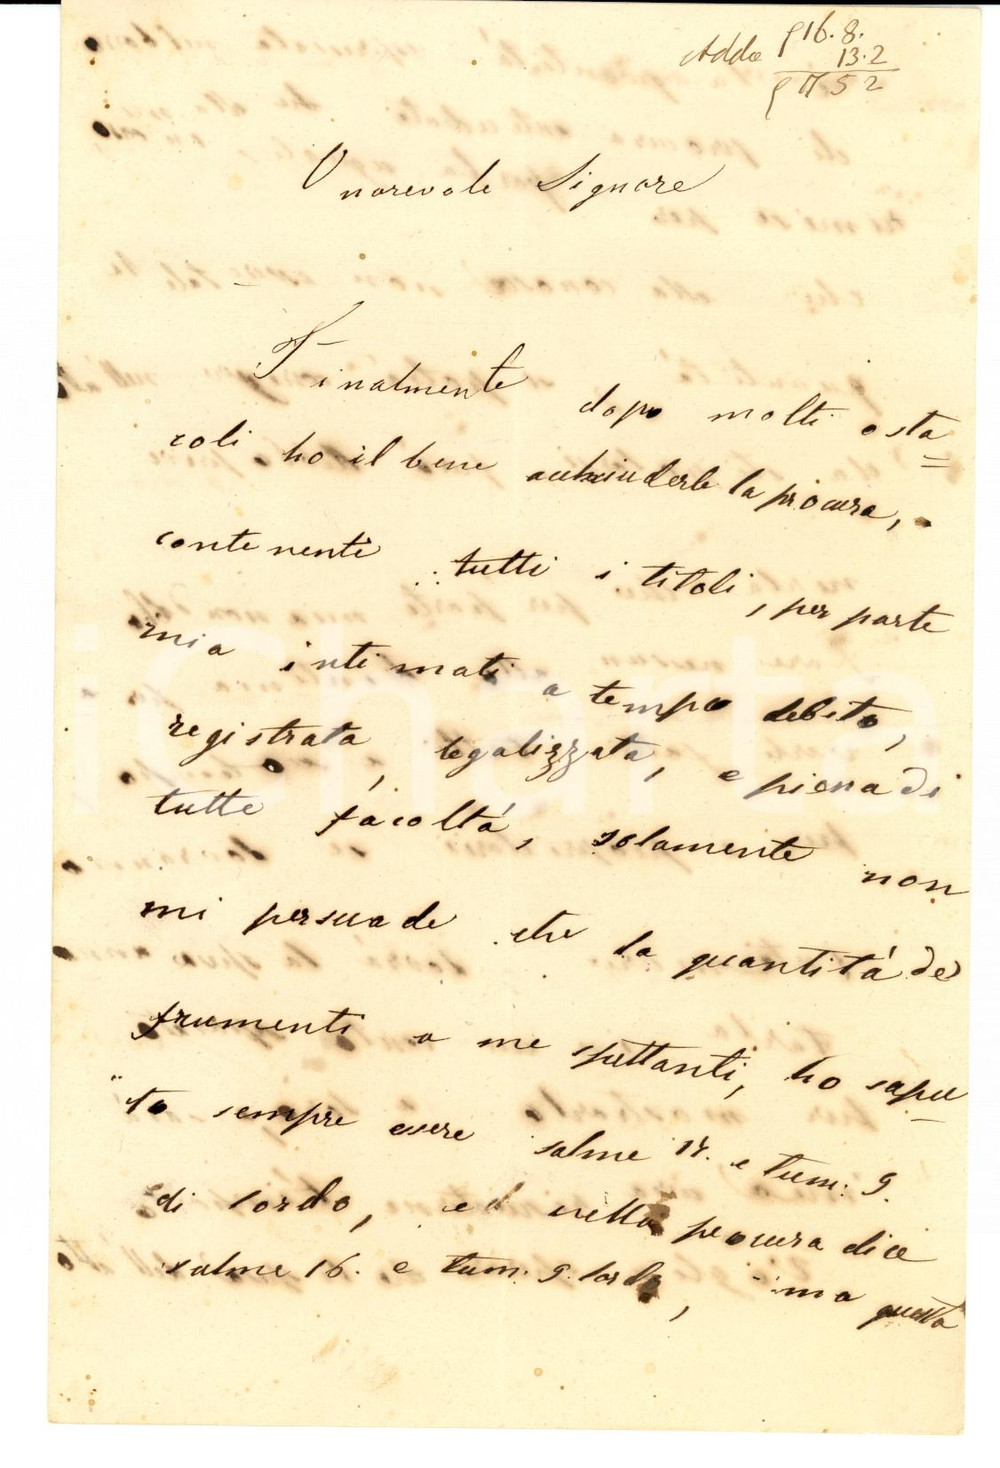 Adda 16.8.
13.2
52
Onorevole Signore
Finalmente dopo molti osta=
coli ho il bene acchiuderle la procura,
contenenti tutti i titoli, per parte
mia intimati a tempo debito,
registrata, legalizzata, e piena di
tutte facoltà, solamente non
mi persuade che la quantità dei
frumenti a me spettanti, ho sapu=
to sempre essere salme 14. e tum: 9.
di lordo, ed nella procura dice
salme 16. e tum: 9. lordo, ma questa
iCharta